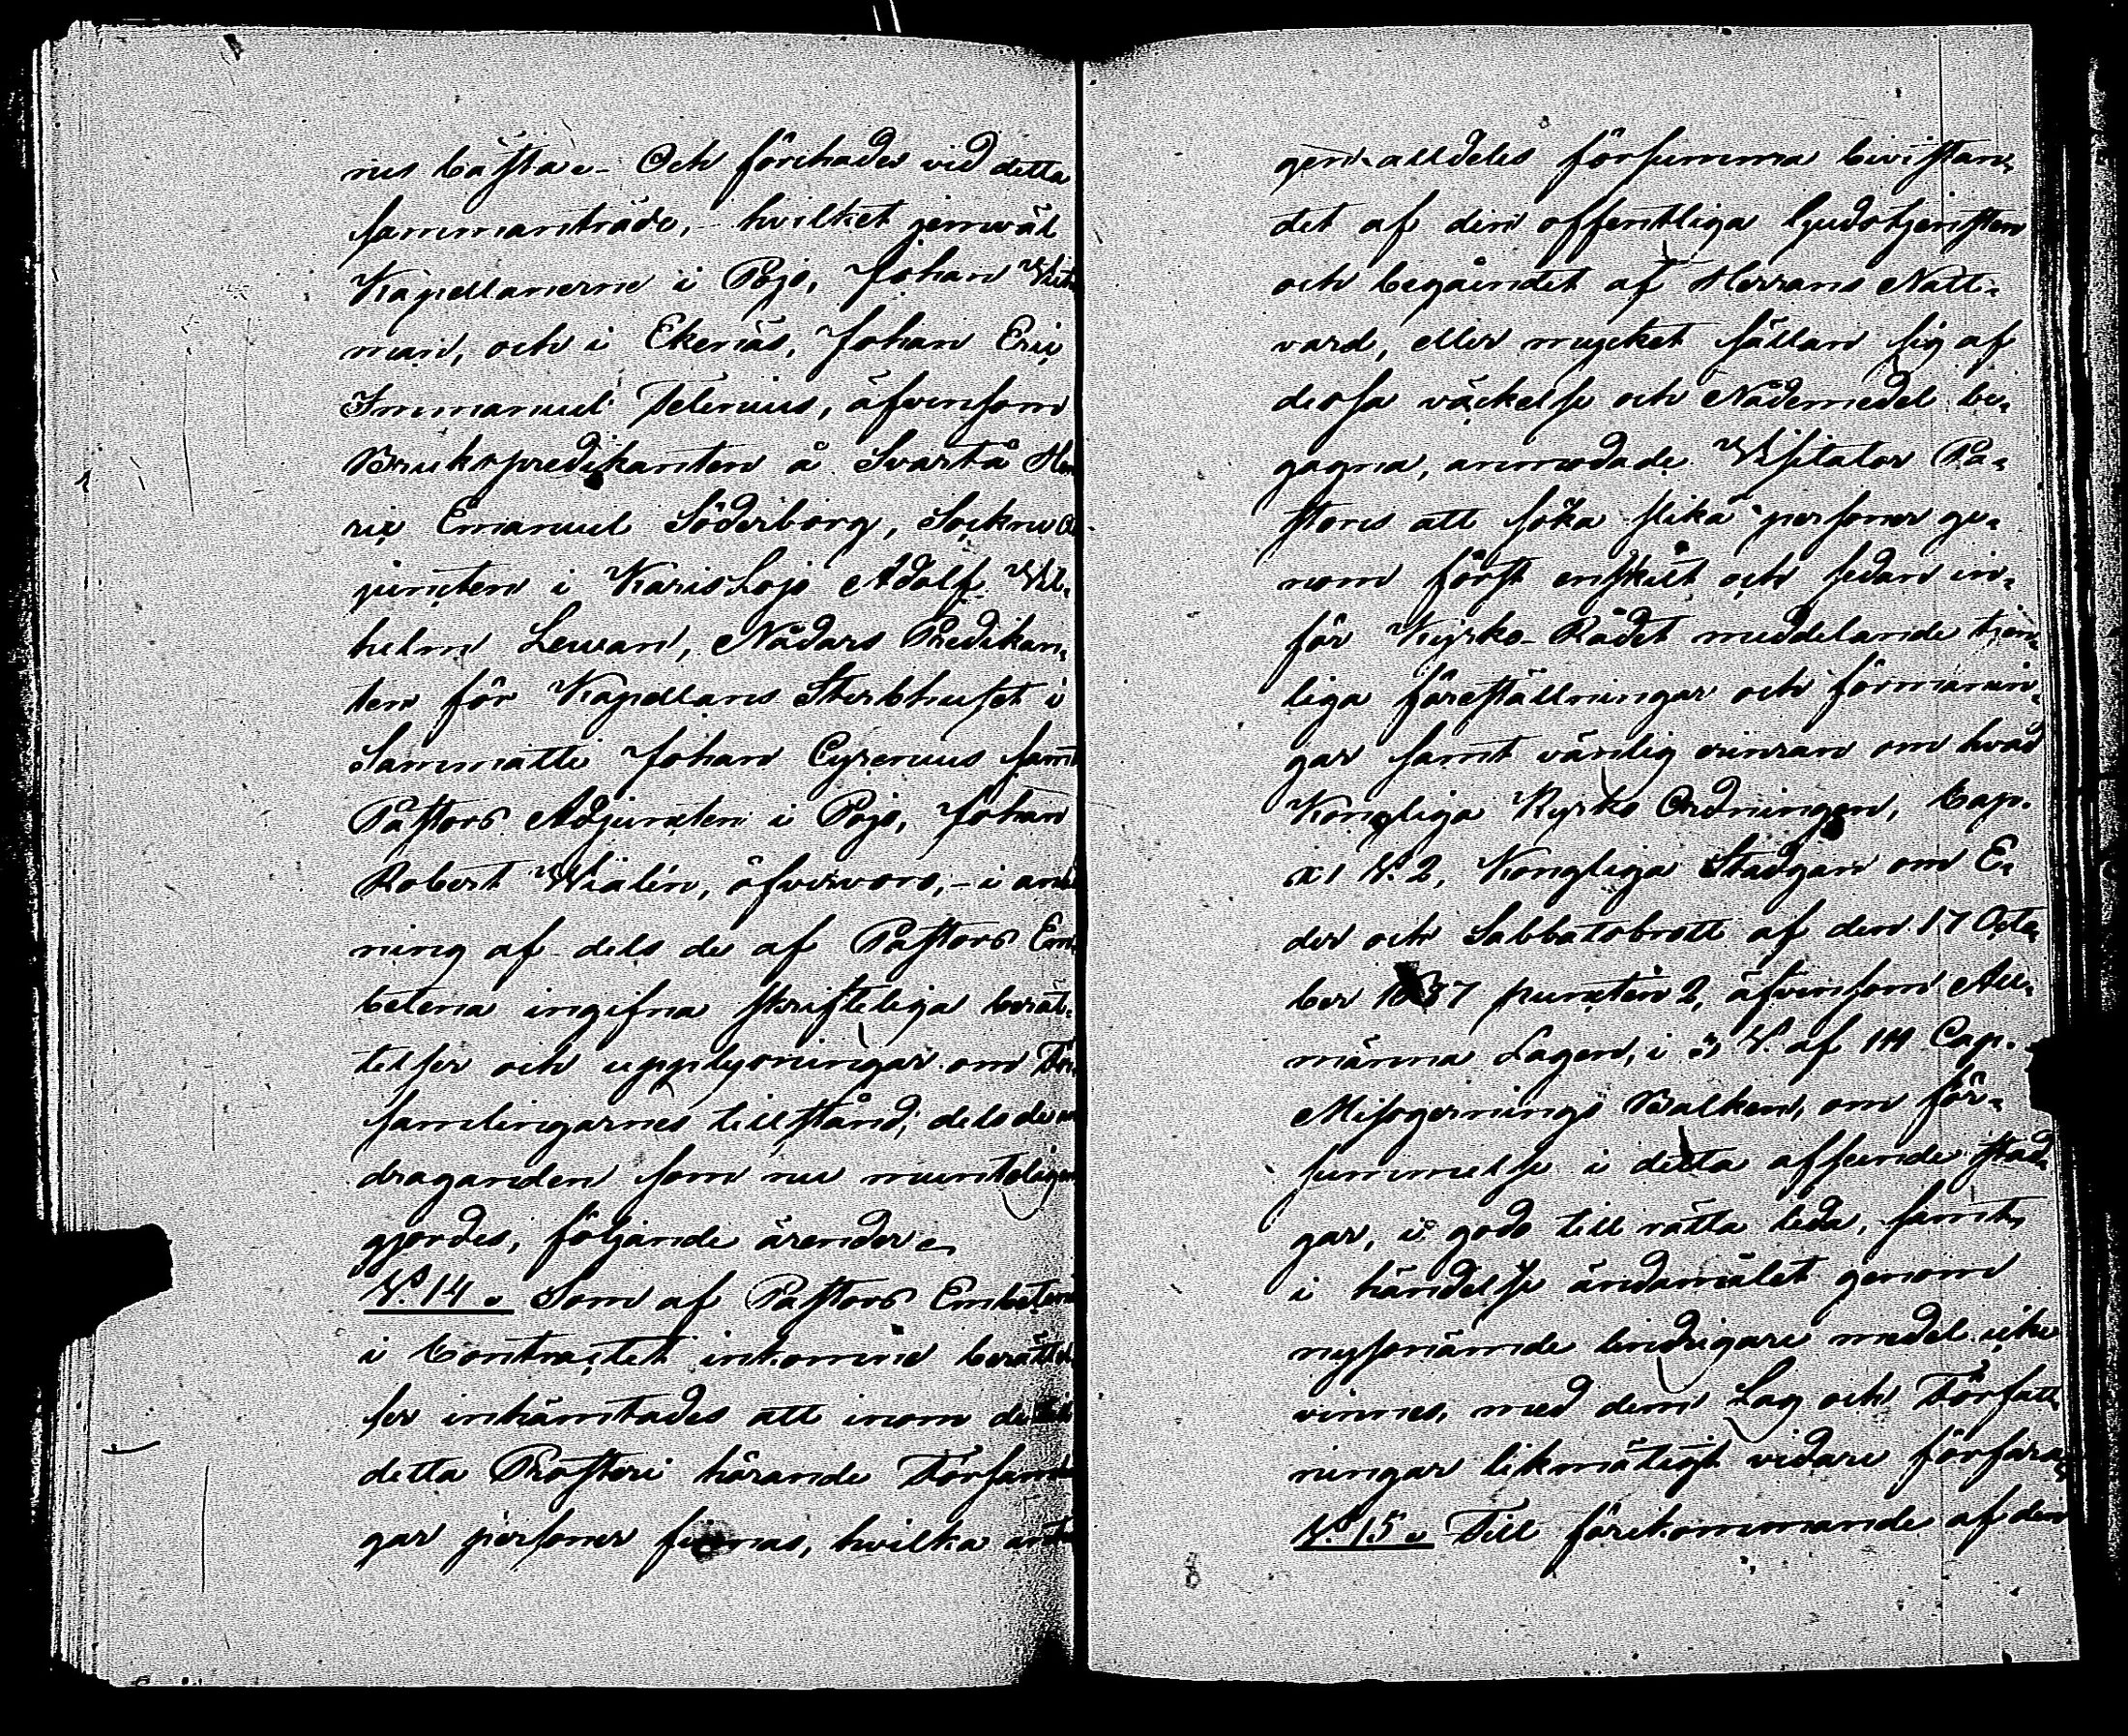 nes bästa. Och förehades vid detta
sammanträde, hvilket jemwäl
Kapellanerne i Pojo, Johan Wik
man, och i Ekenäs, Johan Eric
Immanuel Telenius, äfvensom
Brukspredikanten å Svartå Hen
ric Emanuel Söderborg, Sockne
juncten i Karis Lojo Adolf Wil-
helm Lewan, Nådars Predikan-
ten för Kapellans Sterbhuset i
Sammatti Johan Cyrenius samt
Pastors Adjuncten i Pojo, Johan
Robert Wialén, öfvervoro, - i anled
ning af dels de af Pastors Em-
betena ingifna skrifteliga berät-
telser och upplysningar om För-
samlingarnes tillstånd, dels de an
draganden som nu muntligen
gjordes, följande ärender.
§. 14. Som af Pastors Embetena
i Contractet inkomne berättel
ser inhämtades att inom de till
detta Prosteri hörande Församlin
gar personer finnas, hvilka antin
gen alldeles försumma bevistan-
det af den offentliga Gudstjensten
och begåendet af Herrans Natt-
vard, eller mycket sällan sig af
dessa väckelse och Nådemedel be-
gagna, anmodade Visitator Pa-
stores att söka slika personer ge-
nom först enskilt och sedan in-
för Kyrko-Rådet meddelande tjen-
liga föreställningar och förmanin-
gar samt vänlig erinran om hvad
Kongliga Kyrko Ordningen, Cap.
XI §. 2, Kongliga Stadgan om E-
der och Sabbatsbrott af den 17 Octo-
ber 1687 puncten 2, äfvensom All-
männa Lagen, i 3 §. af III Cap.
Missgernings Balken, om för-
summelse i detta afseende stad-
gar, i godo till rätta leda, samt,
i händelse ändamålet genom
nyssnämde lindrigare medel icke
vinnes, med dem Lag och Författ-
ningar likmätigt vidare förfara.
§. 15. Till förekommande af den